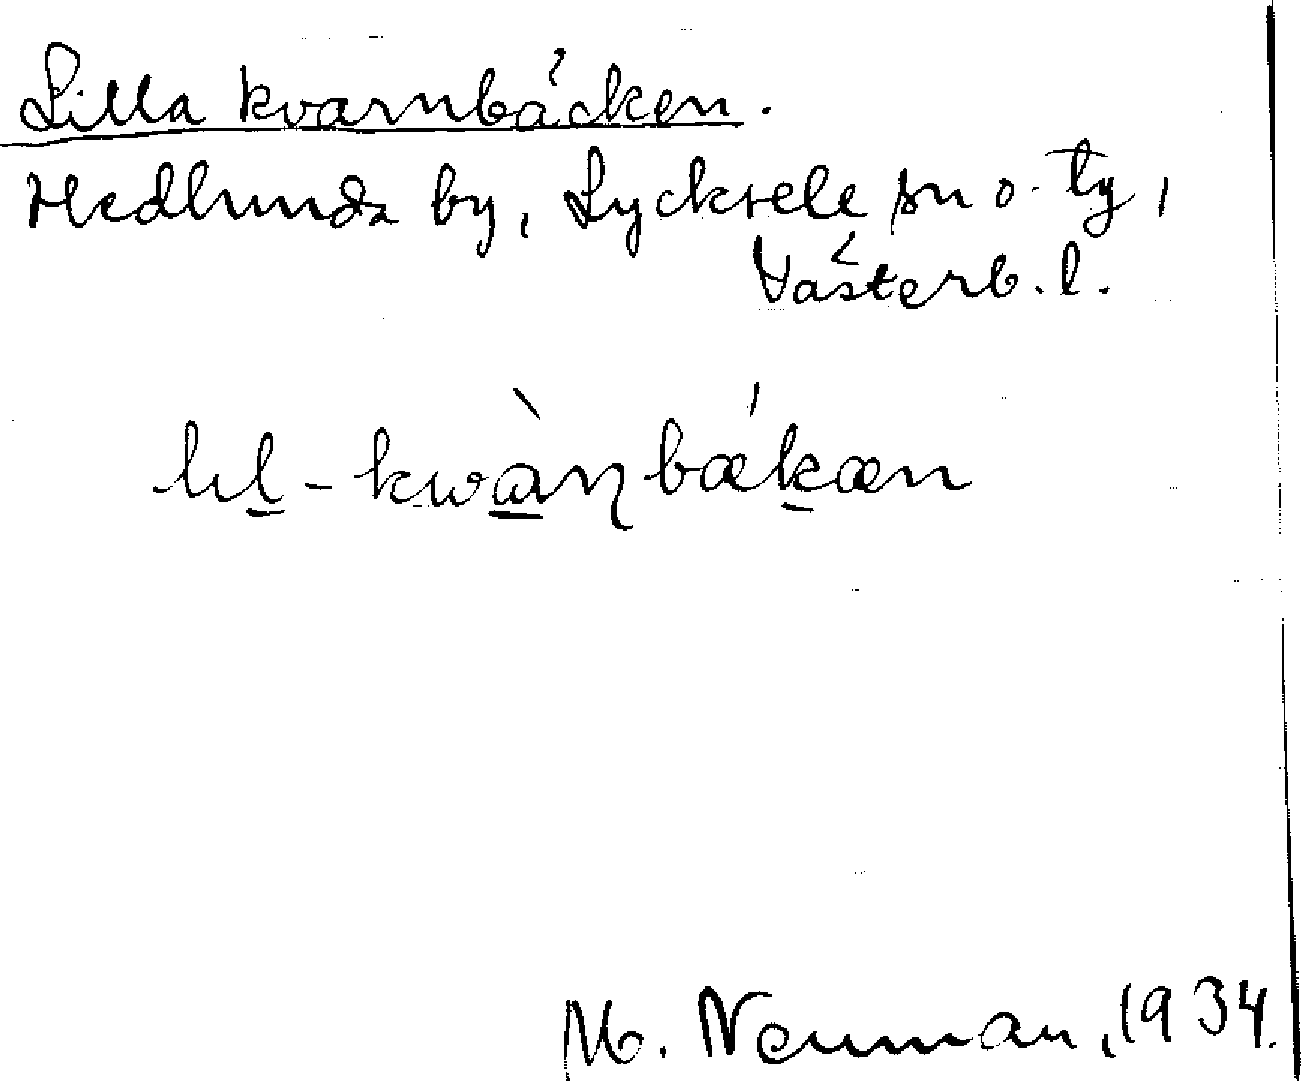 Lilla kvarnbäcken.
Hedlunda by, Lycksele sn o. tg,
Västerb. l.
lıl - kwàɳbækæn
M. Neuman, 1934.